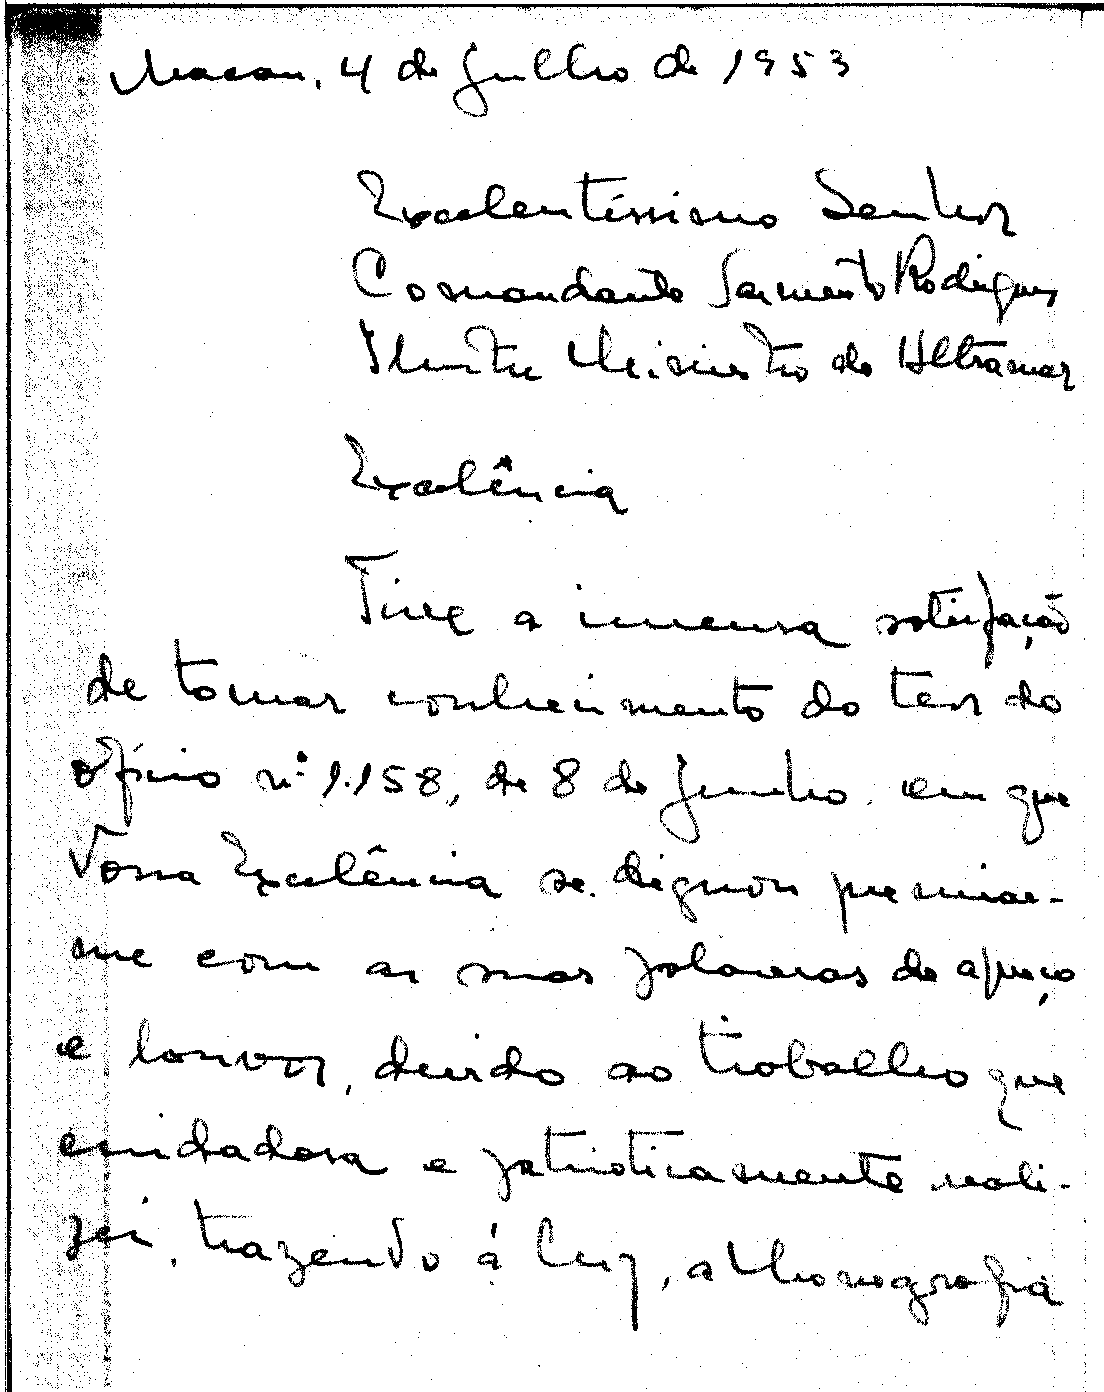 Macau, 4 de Julho de 1953
Excelentíssimo Senhor
Comandante Sarmento Rodrigues
Ilustre Ministro do Ultramar
Excelência
Tive a imensa satisfação
de tomar conhecimento do teor do
ofício nº 1.158, de 8 de Junho, em que
Vossa Excelência se dignou premiar-
me com as suas palavras de apreço
e louvor, devido ao trabalho que
cuidadosa e patrioticamente reali-
zei, trazendo á luz, a Monografia